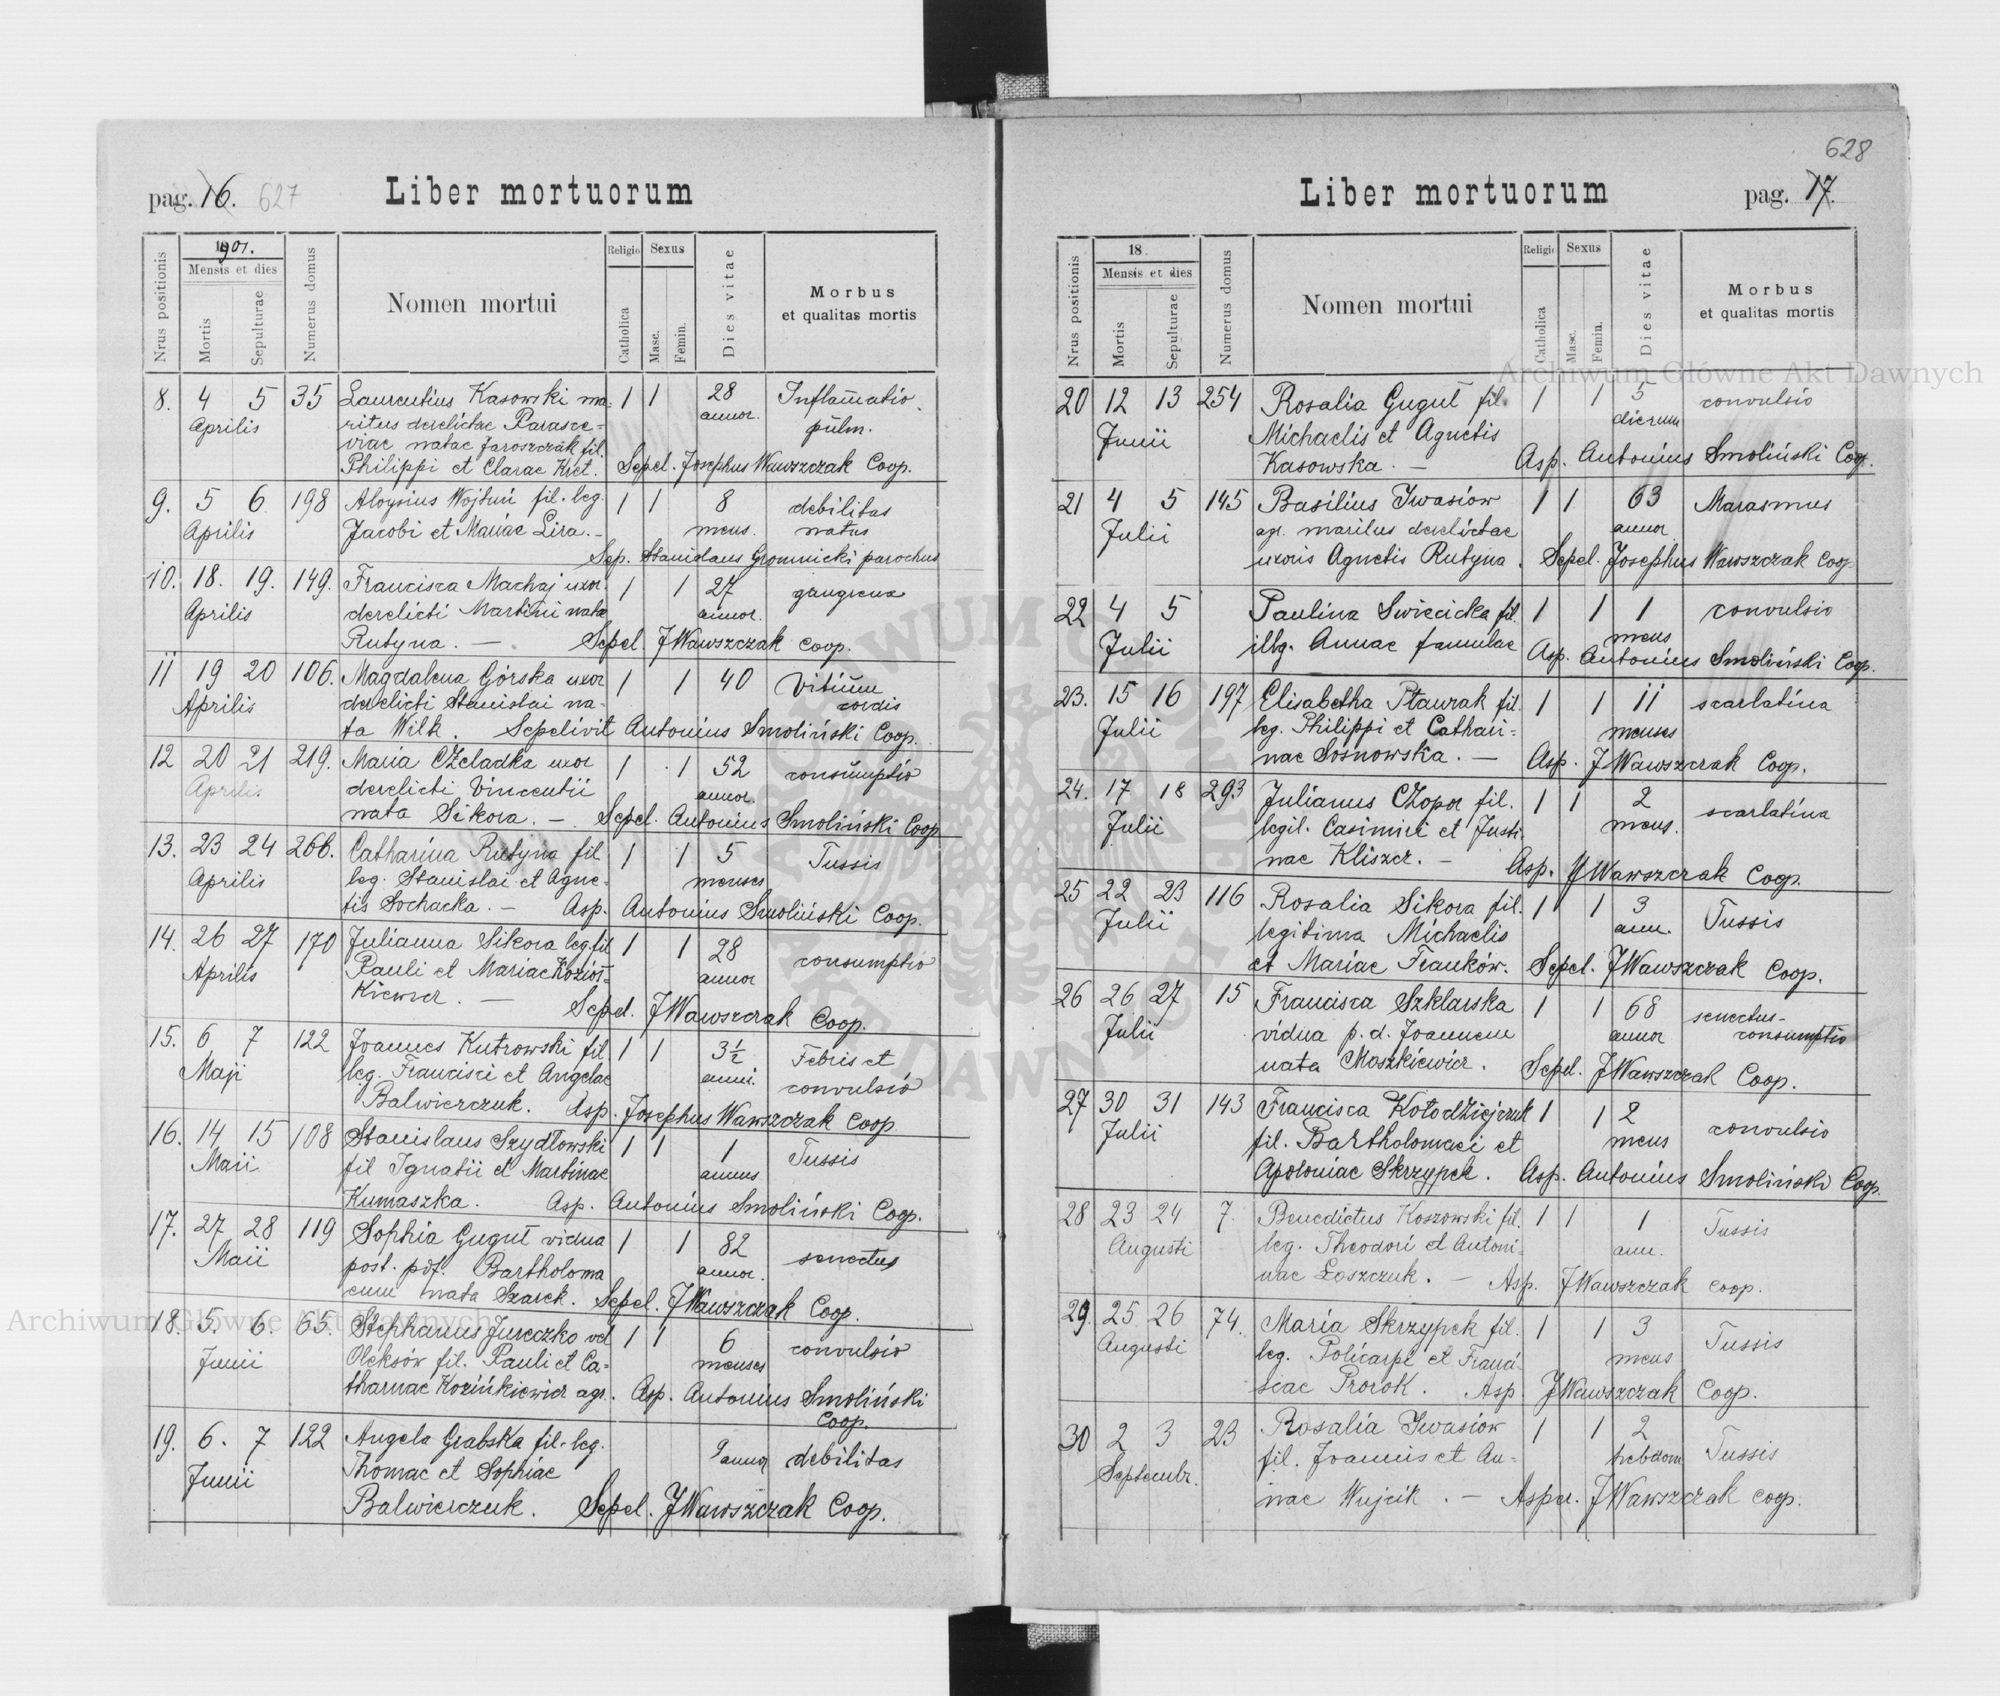 pag. 16. 627
Liber mortuorum
Nrus positionis
1901.
Mensis et dies
Mortis
Sepulturae
Numerus domus
Nomen mortui
Religio
Catholica
Sexus
Masc.
Femin.
Dies vitae
Morbus
et qualitas mortis
8. 4 5 35 Laurentius Kasowski ma- 1 1 28 Inflam̄atio
Aprilis ritus derelictae Parasce- annor. pulm.
viae natae Jaroszczak fil.
Philippi et Clarae Kret. Sepel. Josephus Wawszczak Coop.
9. 5 6 198 Aloysius Wojtuń fil. leg. 1 1 8 debilitas
Aprilis Jacobi et Mariae Lira.- mens. natus
Sep. Stanislaus Gromnicki parochus
10. 18. 19. 149. Francisca Machaj uxor 1 1 27 gangrena
Aprilis derelicti Martini nata annor.
Rutyna. — Sepel. J Wawszczak coop.
11 19 20 106. Magdalena Górska uxor 1 1 40 Vitium
Aprilis derelicti Stanislai na- cordis
ta Wilk. Sepelivit Antonius Smoliński Coop.
12 20 21 219. Maria Czeladka uxor 1 1 52 consumptio
Aprilis derelicti Vincentii annor.
nata Sikora. — Sepel. Antonius Smoliński Coop
13. 23 24 266. Catharina Rutyna fil 1 1 5 Tussis
Aprilis leg. Stanislai et Agne- menses
tis Sochacka. — Asp. Antonius Smoliński Coop.
14. 26 27 170 Julianna Sikora leg. fil 1 1 28 consumptio
Aprilis Pauli et Mariae Kozioł- annor
Kiewicz. — Sepel. J Wawszczak Coop.
15. 6 7 122 Joannes Kutrowski fil. 1 1 3½ Febris et
Maji leg. Francisci et Angelae anni. convulsio
Balwierczuk. Asp. Josephus Wawszczak Coop
16. 14 15 108 Stanislaus Szydłowski 1 1 1 Tussis
Maii fil Ignatii et Martinae annus
Kumaszka. Asp. Antonius Smoliński Coop.
17. 27 28 119 Sophia Guguł vidua 1 1 82 senectus
Maii post. pdf. Bartholoma annor.
eum nata Szarek. Sepel. J Wawszczak Coop.
18. 5. 6. 65. Stephanus Jureczko vel 1 1 6 convulsio
Junii Oleksów fil. Pauli et Ca- menses
tharinae Kozińkiewicz agr. Asp. Antonius Smoliński
Coop.
19. 6. 7 122 Angela Grabska fil. leg. 9 annor debilitas
Junii Thomae et Sophiae
Balwierczuk. Sepel. J Wawszczak Coop.
628
Liber mortuorum
pag. 17.
Nrus positionis
18 .
Mensis et dies
Mortis
Sepulturae
Numerus domus
Nomen mortui
Religio
Catholica
Sexus
Masc.
Femin.
Dies vitae
Morbus
et qualitas mortis
20 12 13 254 Rosalia Guguł fil. 1 1 5 convulsio
Junii Michaelis et Agnetis dierum
Kasowska. — Asp. Antonius Smoliński Coop.
21 4 5 145 Basilius Iwasiów 1 1 63 Marasmus
Julii agr. maritus derelictae annor
uxoris Agnetis Rutyna. Sepel. Josephus Wawszczak Coop
22 4 5 Paulina Swiecicka fil. 1 1 1 convulsio
Julii illg. Annae famulae mens
Asp. Antonius Smoliński Coop.
23. 15 16 197 Elisabetha Ptaszak fil. 1 1 11 scarlatina
Julii leg. Philippi et Cathari- menses
nae Sosnowska. — Asp. J Wawszczak Coop.
24. 17 18 293 Julianus Czopor fil. 1 1 2 scarlatina
Julii legit. Casimiri et Justi- mens.
nae Kliszcz. — Asp. J Wawszczak Coop.
25 22 23 116 Rosalia Sikora fil. 1 1 3 Tussis
Julii legitima Michaelis ann.
et Mariae Franków. Sepel. J Wawszczak Coop.
26 26 27 15 Francisca Szklarska 1 1 68 senectus-
Julii vidua p. d. Joannem annor consumptio
nata Moszkiewicz. Sepel. J Wawszczak Coop.
27 30 31 143 Francisca Kołodziejczuk 1 1 2 convulsio
Julii fil. Bartholomaei et mens
Apoloniae Skrzypek. Asp. Antonius Smoliński Coop.
28 23 24 7. Benedictus Koszowski fil. 1 1 1 Tussis
Augusti leg. Theodori et Antoni- ann.
nae Łoszczuk. — Asp. J Wawszczak coop.
29. 25 26 74. Maria Skrzypek fil. 1 1 3 Tussis
Augusti leg. Policarpi et Franci- mens
scae Prorok. Asp. J Wawszczak Coop.
30 2 3 23 Rosalia Iwasiów 1 1 2 Tussis
Septembr. fil. Joannis et An- hebdom
nae Wujcik. — Asper. J Wawszczak coop.
Archiwum Główne Akt Dawnych
Archiwum Główne Akt Dawnych
ARCHIWUM GŁÓWNE AKT DAWNYCH